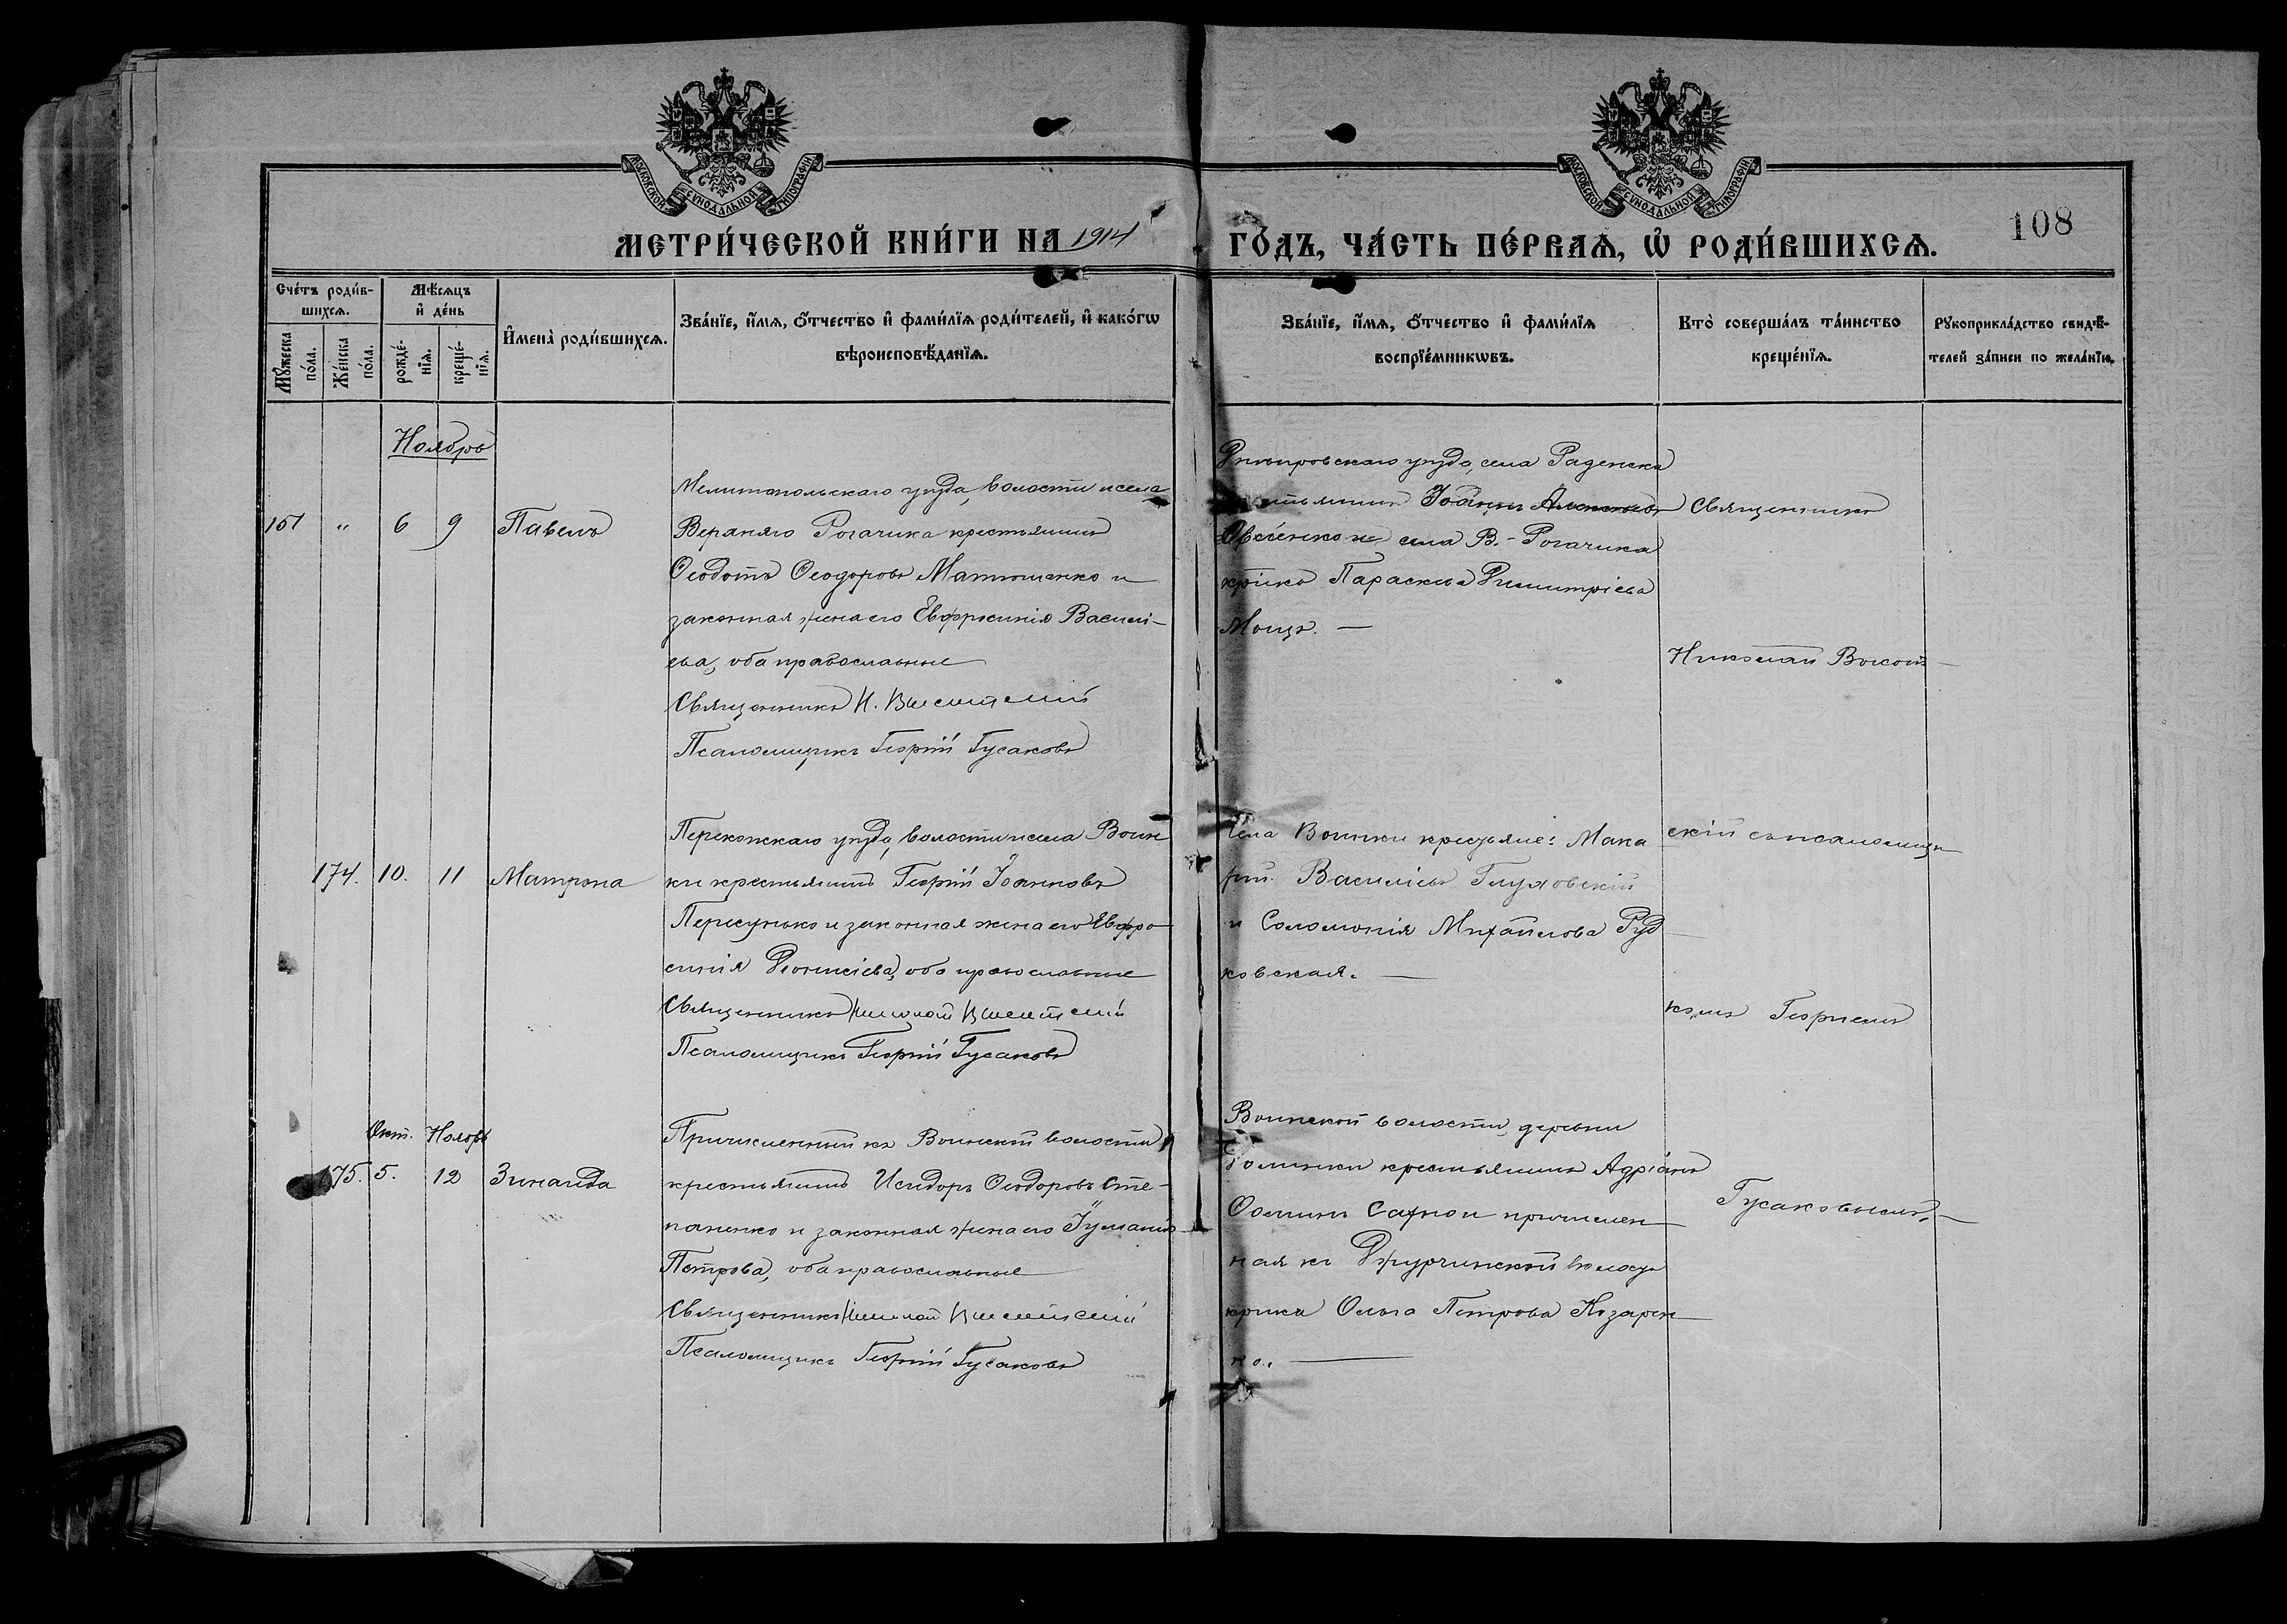 МОСКОВСКОЙ СУНОДАЛЬНОЙ ТИПОГРАФІИ
МОСКОВСКОЙ СУНОДАЛЬНОЙ ТИПОГРАФІИ
МЕТРИ́ЧЕСКОЙ КНИ́ГИ НА 1914 ГО́ДЪ, ЧА́СТЬ ПЕ́РВАѦ, Ѡ҆ РОДИ́ВШИХСѦ.
108
Сче́тъ роди́в-
шихсѧ.
Мꙋ́жеска по́ла.
Же́нска по́ла.
Мѣ́сѧцъ
и҆ де́нь
рожде́-
нїѧ.
креще́-
нїѧ.
И҆мена̀ роди́вшихсѧ.
Зва́нїе, и҆́мѧ, ѻ҆́тчество и҆ фами́лїѧ роди́телей, и҆ како́гѡ
вѣроисповѣ́данїѧ.
Зва́нїе, и҆́мѧ, ѻ҆́тчество и҆ фами́лїѧ
воспрїе́мникѡвъ.
Кто̀ соверша́лъ та́инство
креще́нїѧ.
Рꙋкоприкла́дство свидѣ́-
телей за́писи по жела́нїю.
Ноябрь
151 " 6 9 Павелъ
Мелитопольскаго уѣзда, волости и села
Верхняго Рогачика крестьянинъ
Ѳеодотъ Ѳеодоровъ Матюшенко и
законная жена его Евфросинія Василі-
ева, оба православные
Священникъ Н. Высотскій
Псаломщикъ Георгій Гусаковъ
Днѣпровскаго уѣзда, села Раденска
Іоаннъ
Овсѣенко и села В.-Рогачика
кр-ка Параскева Димитріева
Мощь.
174. 10. 11 Матрона
Перекопскаго уѣзда, волости и села Воин
ки крестьянинъ Георгій Іоанновъ
Пересунько и законная жена его Евфро
синія Діонисіева, оба православные
Священникъ Николай Высотскій
Псаломщикъ Георгій Гусаковъ
Села Воинки крестьяне: Мака
рій Василіевъ Глуховскій
и Соломонія Михайлова Руд
ковская.
Окт. Ноябрь
175. 5. 12 Зинаида
Причисленный къ Воинской волости
крестьянинъ Исидоръ Ѳеодоровъ Сте-
паненко и законная жена его Іуліанія
Петрова, оба православные
Священникъ Николай Высотскій
Псаломщикъ Георгій Гусаковъ
Воинской волости, деревни
крестьянинъ Адріанъ
Ѳоминъ и причислен
ная къ Джурчинской волости
кр-ка Ольга Петрова Козарен
ко.
Священникъ
Николай Высот
скій съ псаломщи
комъ Георгіемъ
Гусаковымъ.